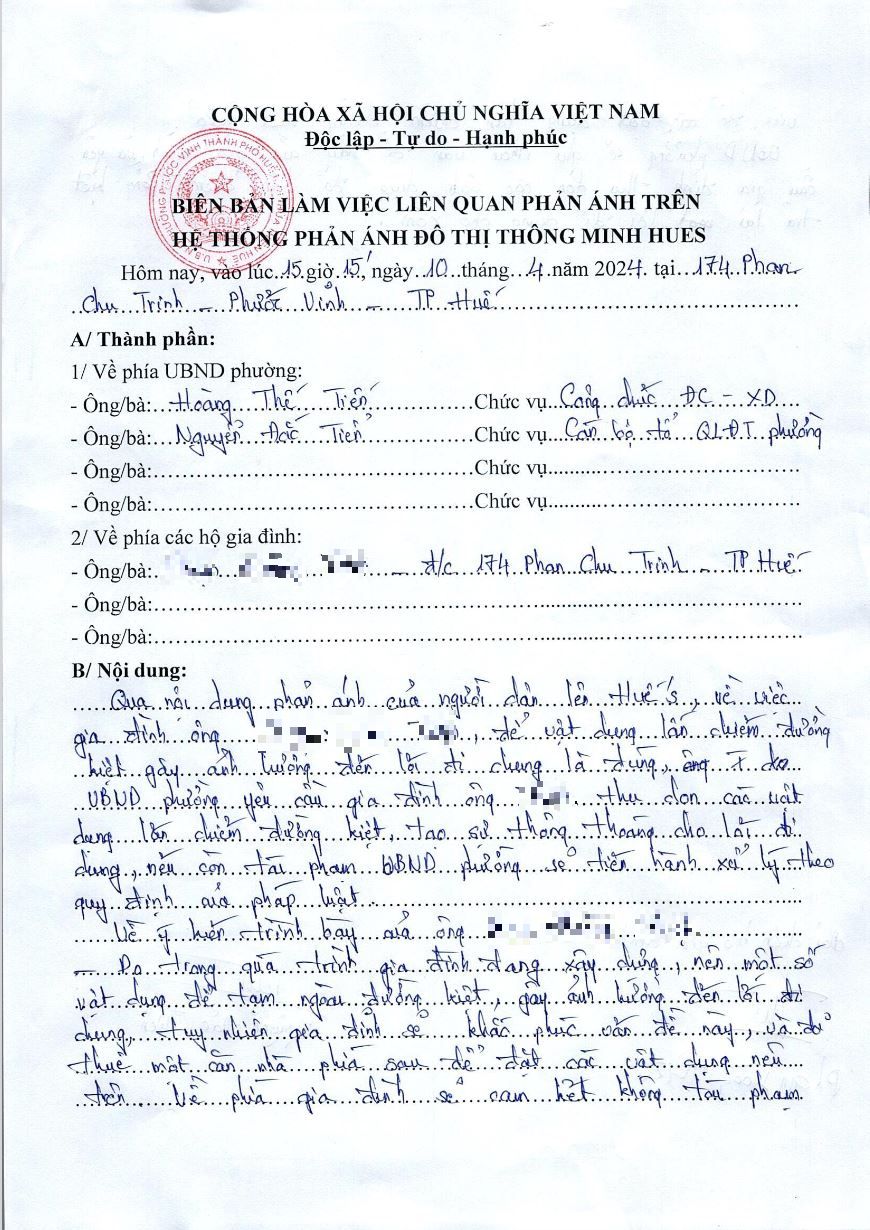 CỘNG HÒA XÃ HỘI CHỦ NGHĨA VIỆT NAM
Độc lập - Tự do - Hạnh phúc
BIÊN BẢN LÀM VIỆC LIÊN QUAN PHẢN ÁNH TRÊN
HỆ THỐNG PHẢN ÁNH ĐÔ THỊ THÔNG MINH HUES
Hôm nay, vào lúc 15 giờ 15', ngày 10 tháng 4 năm 2024 tại 174 Phan
Chu Trinh - Phước Vĩnh - TP Huế
A/ Thành phần:
1/ Về phía UBND phường:
- Ông/bà: Hoàng Thế Tiến Chức vụ Công chức ĐC - XD
- Ông/bà: Nguyễn Đắc Tiến Chức vụ Cán bộ tổ QLĐT phường
- Ông/bà: Chức vụ
- Ông/bà: Chức vụ
2/ Về phía các hộ gia đình:
- Ông/bà: - đ/c 174 Phan Chu Trinh - TP Huế
- Ông/bà:
- Ông/bà:
B/ Nội dung:
Qua nội dung phản ánh của người dân lên Huế's, về việc
gia đình ông , để vật dụng lấn chiếm đường
kiệt gây ảnh hưởng đến lối đi chung là đúng,
UBND phường yêu cầu gia đình ông thu dọn các vật
dụng lấn chiếm đường kiệt, tạo sự thông thoáng cho lối đi
dụng, nếu còn tái phạm UBND phường sẽ tiến hành xử lý theo
quy định của pháp luật.
Về ý kiến trình bày của ông
- Do trong quá trình gia đình đang xây dựng, nên một số
vật dụng để tạm ngoài đường kiệt, gây ảnh hưởng đến lối đi
dụng, tuy nhiên gia đình sẽ khắc phục vấn đề này, và đã
thuê một căn nhà phía sau để đặt các vật dụng nêu
trên. Về phía gia đình sẽ cam kết không tái phạm.